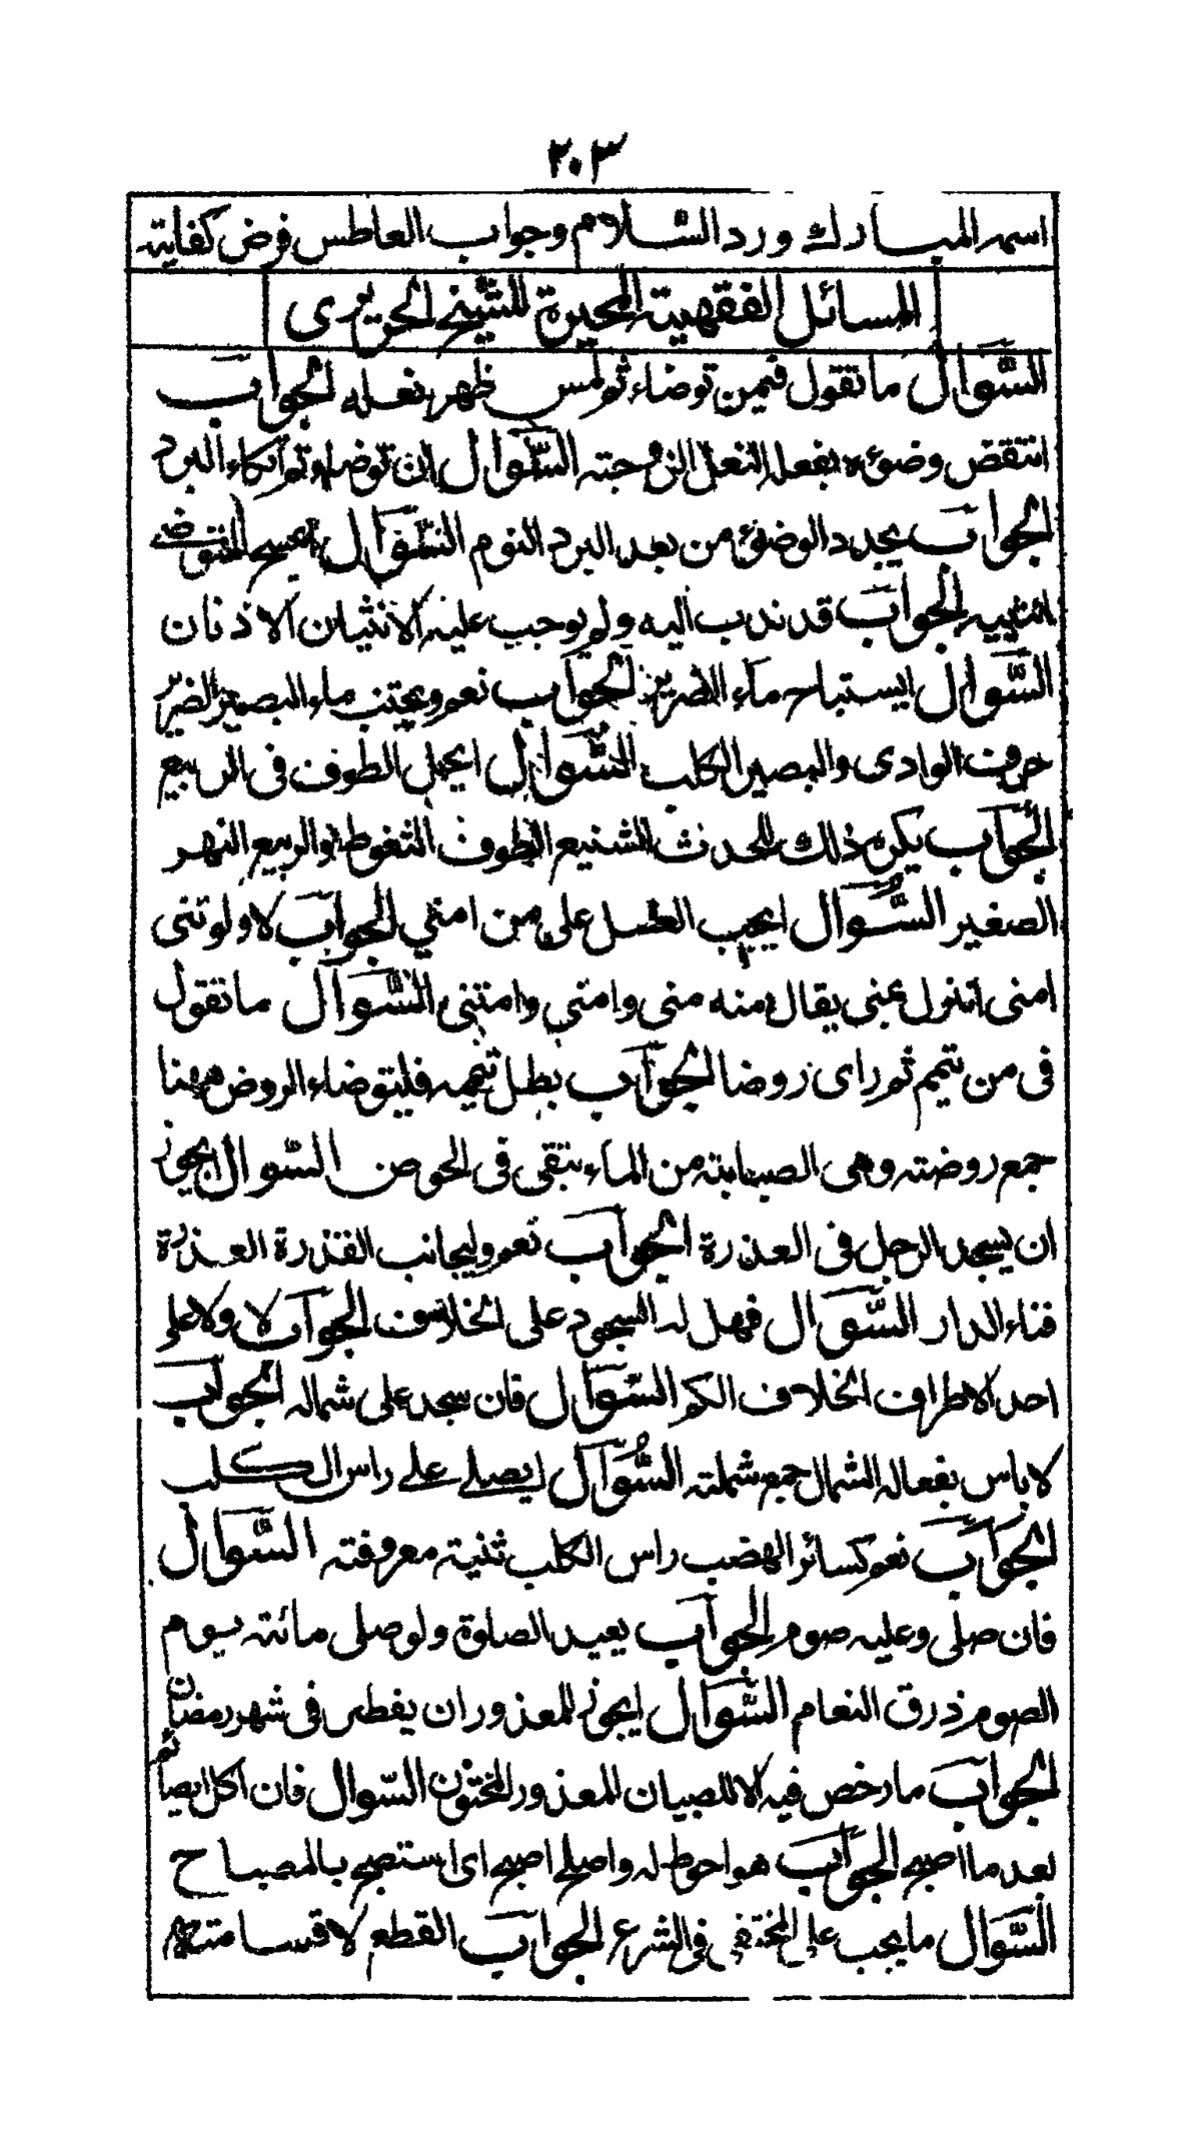 ٢٠٣
اسمه المبارك ورد السلام وجواب العاطس فرض كفاية
المسائل الفقهية المحيرة للشيخ الحريرى
السّوال ما تقول فيمن توضاء ثم لمس ظهر نعله الجواب
انتقض وضوءه بفعله النعل الزوجته السّوال ان توضاء ثم اتكاء البرد
الجواب يجدد الوضوء من بعد البرد النوم السّوال ايمسح المتوضى
انثييه الجواب قد ندب اليه ولم يوجب عليه الانثيان الاذنان
السّوال ايستباح ماء الضرير الجواب نعم ويجتنب ماء البصير الضرير
حرف الوادى والبصير الكلب السّوال ايحل الطوف فى الربيع
الجواب يكره ذلك للحدث الشنيع الطوف التغوط والربيع النهر
الصغير السّوال ايجب الغسل على من امنى الجواب لا ولو ثنى
امنى انزل بمنى يقال منه منى وامنى وامتنى السّوال ما تقول
فى من تيمم ثم راى روضا الجواب بطل تيممه فليتوضاء الروض ههنا
جمع روضته وهى الصبابة من الماء تبقى فى الحوض السّوال ايجوز
ان يسجد الرجل فى العذرة الجواب نعم وليجانب القذرة العذرة
فناء الدار السّوال فهل له السجود على الخلاف الجواب لا ولا على
احد الاطراف الخلاف الكم السّوال فان سجد على شماله الجواب
لا باس بفعاله الشمال جمع شملته السّوال ايصلے علے راس الكلب
الجواب نعم كسائر الهضب راس الكلب ثنية معروفته السّوال
فان صلى وعليه صوم الجواب يعيد الصلوة ولو صلى مائة يوم
الصوم ذرق النعام السّوال ايجوز للمعذور ان يفطر فى شهر رمضان
الجواب ما رخص فيه الا للصبيان المعذور المختون السّوال فان اكل الصائم
بعد ما اصبح الجواب هو احوط له واصلح اصبح اى استصبح بالمصباح
السّوال ما يجب على المختفى فى الشرع الجواب القطع لاقسامته